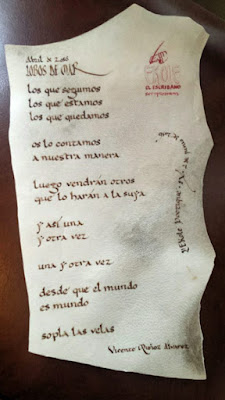 Abril de 2016
LOBOS DE MAR
los que seguimos
los que estamos
los que quedamos
os lo contamos
a nuestra manera
luego vendrán otros
que lo harán a la suya
y así una
y otra vez
una y otra vez
desde que el mundo
es mundo
sopla las velas
Vicente Muñoz Álvarez
EL ESCRIBANO